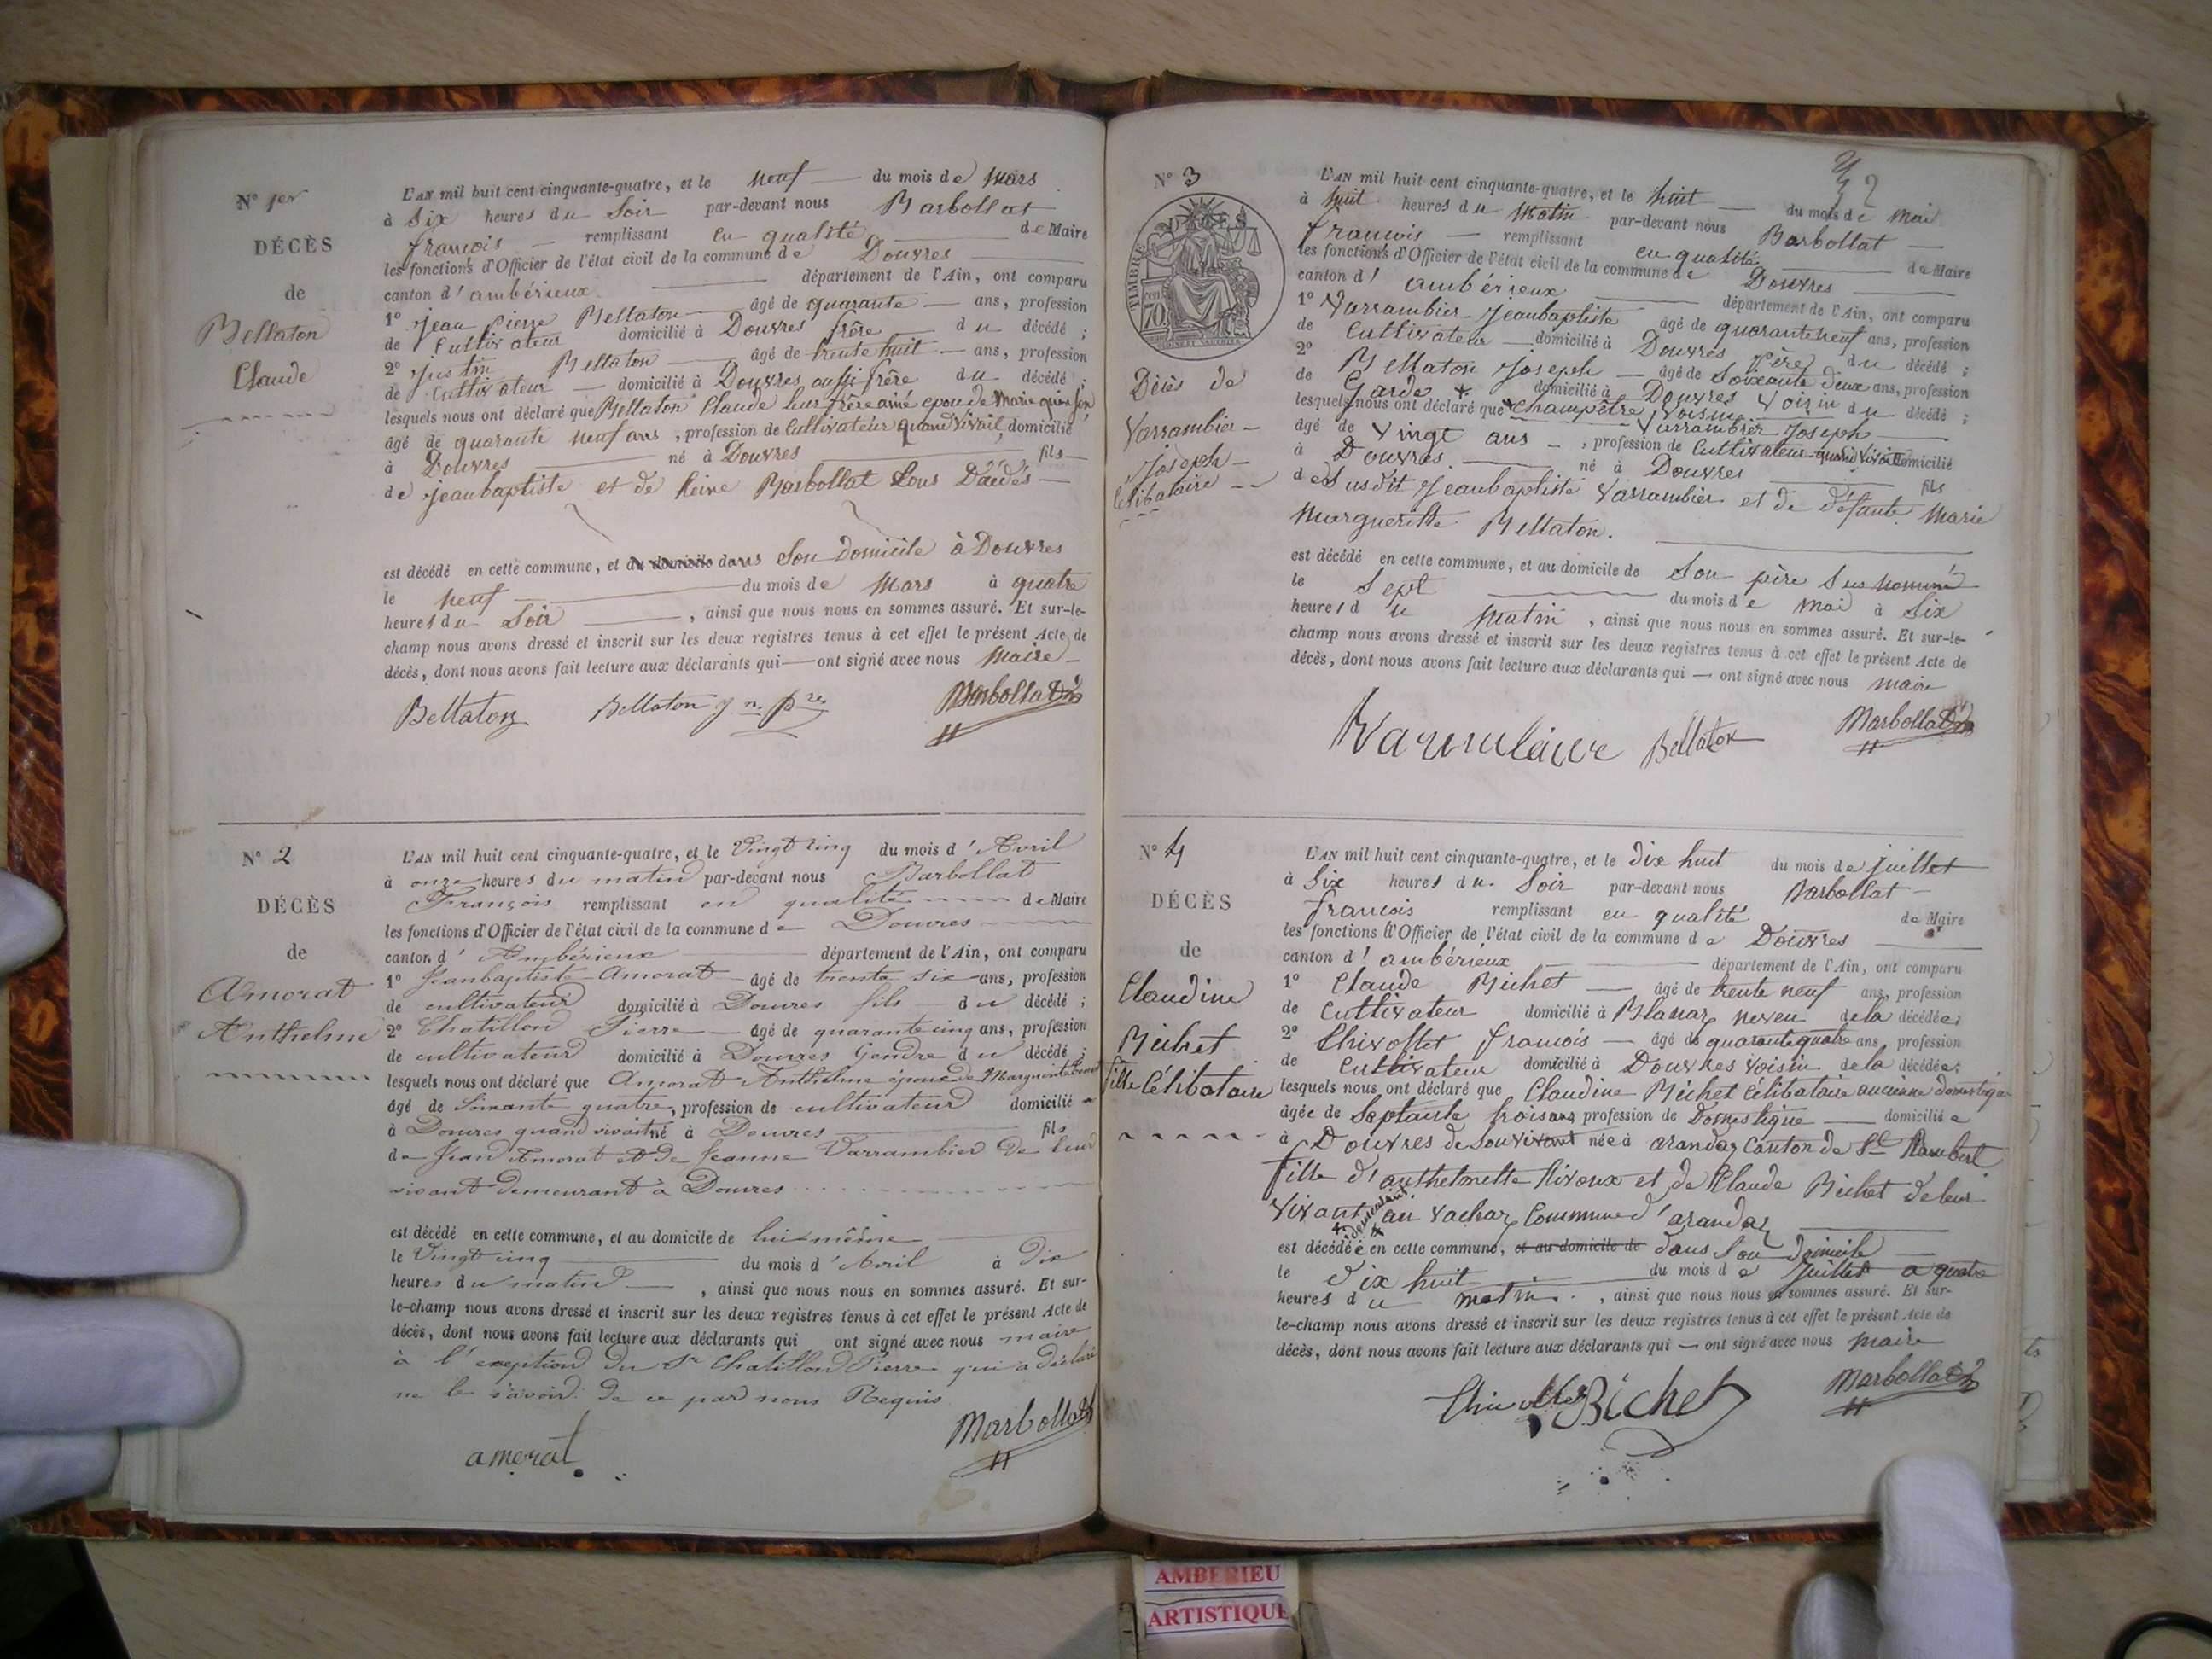 N° 1er
DÉCÈS
de
Bellaton
Claude
L'AN mil huit cent cinquante-quatre, et le neuf du mois de Mars
à Six heures du Soir par-devant nous Barbollat
francois remplissant en qualité de Maire
les fonctions d'Officier de l'état civil de la commune de Douvres
canton d'ambérieux département de l'Ain, ont comparu
1° jean Pierre Bellaton âgé de quarante ans, profession
de Cultivateur domicilié à Douvres frêre du décédé ;
2° justin Bellaton âgé de trente huit ans, profession
de Cultivateur domicilié à Douvres aussi frêre du décédé ;
lesquels nous ont déclaré que Bellaton Claude leur frêre ainé epou de Marie
âgé de quarante neuf ans, profession de Cultivateur quand vivait, domicilié
à Douvres né à Douvres fils
de jeanbaptiste et de Reine Barbollat tous Décédés
est décédé en cette commune, et au domicile dans Son Domicile à Douvres
le neuf du mois de Mars à quatre
heures du Soir, ainsi que nous nous en sommes assuré. Et sur-le-
champ nous avons dressé et inscrit sur les deux registres tenus à cet effet le présent Acte de
décès, dont nous avons fait lecture aux déclarants qui ont signé avec nous Maire
Bellaton Bellaton j n. pre Barbollat
N° 2
DÉCÈS
de
Amorat
Anthelme
L'AN mil huit cent cinquante-quatre, et le Vingt cinq du mois d'Avril
à onze heures du matin par-devant nous Barbollat
François remplissant en qualité de Maire
les fonctions d'Officier de l'état civil de la commune de Douvres
canton d'Ambérieux département de l'Ain, ont comparu
1° Jeanbaptiste Amorat âgé de trente six ans, profession
de cultivateur domicilié à Douvres fils du décédé ;
2° Chatillon Pierre âgé de quarante cinq ans, profession
de cultivateur domicilié à Douvres Gendre du décédé ;
lesquels nous ont déclaré que Amorat Anthelme époux de Marguerite
âgé de Soixante quatre, profession de cultivateur domicilié
à Douvres quand vivait né à Douvres fils
de Jean Amorat et de Jeanne Varrambier De leur
vivant demeurant à Douvres
est décédé en cette commune, et au domicile de lui-même
le Vingt cinq du mois d'Avril à Dix
heures du matin, ainsi que nous nous en sommes assuré. Et sur-
le-champ nous avons dressé et inscrit sur les deux registres tenus à cet effet le présent Acte de
décès, dont nous avons fait lecture aux déclarants qui ont signé avec nous maire
à l'exeption du Sr Chatillon Pierre qui a déclaré
ne le savoir de ce par nous Requis
amorat Barbollat
N° 3
TIMBRE
70
Décès de
Varrambier
Joseph
Célibataire
L'AN mil huit cent cinquante-quatre, et le huit du mois de Mai
à huit heures du Matin par-devant nous Barbollat
francois remplissant en qualité de Maire
les fonctions d'Officier de l'état civil de la commune de Douvres
canton d'ambérieux département de l'Ain, ont comparu
1° Varrambier Jeanbaptiste âgé de quarante neuf ans, profession
de Cultivateur domicilié à Douvres Père du décédé ;
2° Bellaton Joseph âgé de Soixante deux ans, profession
de Garde domicilié à Douvres Voisin du décédé ;
lesquels nous ont déclaré que champêtre Voisin Varrambier Joseph
âgé de Vingt ans, profession de Cultivateur quand vivait domicilié
à Douvres né à Douvres fils
de Susdit Jeanbaptiste Varrambier et de défunte Marie
Margueritte Bellaton.
est décédé en cette commune, et au domicile de Son père Sus nommé
le Sept du mois de Mai à Six
heures du Matin, ainsi que nous nous en sommes assuré. Et sur-le-
champ nous avons dressé et inscrit sur les deux registres tenus à cet effet le présent Acte de
décès, dont nous avons fait lecture aux déclarants qui ont signé avec nous maire
Bellaton Barbollat
N° 4
DÉCÈS
de
Claudine
Bichet
fille Célibataire
L'AN mil huit cent cinquante-quatre, et le dix huit du mois de juillet
à Six heures du Soir par-devant nous Barbollat
francois remplissant en qualité de Maire
les fonctions d'Officier de l'état civil de la commune de Douvres
canton d'ambérieux département de l'Ain, ont comparu
1° Claude Bichet âgé de trente neuf ans, profession
de Cultivateur domicilié à Blanaz neveu de la décédée ;
2° Chivollet francois âgé de quarante quatre ans, profession
de Cultivateur domicilié à Douvres Voisin de la décédée ;
lesquels nous ont déclaré que Claudine Bichet Célibataire ancienne domestique
âgée de Septante trois ans profession de Domestique domiciliée
à Douvres de Son vivant née à arandaz Canton de St Rambert
fille d'anthelmette Rivoux et de Claude Bichet de leur
vivant demeurant au Vachaz Commune d'arandaz
est décédée en cette commune, et au domicile de dans Son Domicile
le Dix huit du mois de Juillet a quatre
heures du matin, ainsi que nous nous en sommes assuré. Et sur-
le-champ nous avons dressé et inscrit sur les deux registres tenus à cet effet le présent Acte de
décès, dont nous avons fait lecture aux déclarants qui ont signé avec nous Maire
Bichet Barbollat
AMBERIEU
ARTISTIQUE